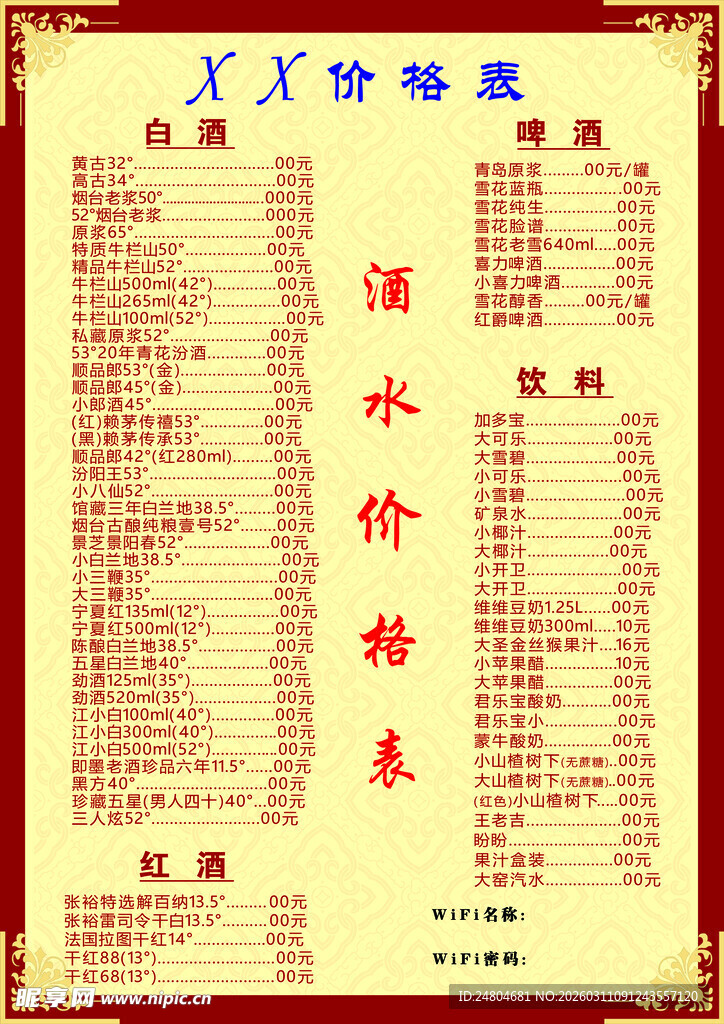 XX价格表
白 酒
黄古32°...............................00元
高古34°...............................00元
烟台老浆50°............................000元
52°烟台老浆.......................000元
原浆65°...............................00元
特质牛栏山50°.....................00元
精品牛栏山52°....................00元
牛栏山500ml(42°)..............00元
牛栏山265ml(42°)...............00元
牛栏山100ml(52°).................00元
私藏原浆52°......................00元
53°20年青花汾酒.............00元
顺品郎53°(金)...................00元
顺品郎45°(金)....................00元
小郎酒45°...........................00元
(红)赖茅传禧53°..............00元
(黑)赖茅传承53°..............00元
顺品郎42°(红280ml).........00元
汾阳王53°............................00元
小八仙52°...........................00元
馆藏三年白兰地38.5°.........00元
烟台古酿纯粮壹号52°........00元
景芝景阳春52°...................00元
小白兰地38.5°......................00元
小三鞭35°............................00元
大三鞭35°...........................00元
宁夏红135ml(12°)................00元
宁夏红500ml(12°)...............00元
陈酿白兰地38.5°...................00元
五星白兰地40°..................00元
劲酒125ml(35°)...................00元
劲酒520ml(35°)...................00元
江小白100ml(40°)...............00元
江小白300ml(40°)..............00元
江小白500ml(52°)...............00元
即墨老酒珍品六年11.5°......00元
黑方40°.............................00元
珍藏五星(男人四十)40°...00元
三人炫52°........................00元
红 酒
张裕特选解百纳13.5°.........00元
张裕雷司令干白13.5°..........00元
法国拉图干红14°................00元
干红88(13°)..........................00元
干红68(13°)..........................00元
酒
水
价
格
表
啤 酒
青岛原浆.........00元/罐
雪花蓝瓶.................00元
雪花纯生................00元
雪花脸谱................00元
雪花老雪640ml.....00元
喜力啤酒................00元
小喜力啤酒............00元
雪花醇香.........00元/罐
红爵啤酒................00元
饮 料
加多宝.....................00元
大可乐...................00元
大雪碧....................00元
小可乐.....................00元
小雪碧......................00元
矿泉水....................00元
小椰汁...................00元
大椰汁..................00元
小开卫.....................00元
大开卫....................00元
维维豆奶1.25L......00元
维维豆奶300ml.....10元
大圣金丝猴果汁...16元
小苹果醋................10元
大苹果醋...............00元
君乐宝酸奶..........00元
君乐宝小................00元
蒙牛酸奶...............00元
小山楂树下(无蔗糖)..00元
大山楂树下(无蔗糖)..00元
(红色)小山楂树下.....00元
王老吉.....................00元
盼盼.........................00元
果汁盒装...............00元
大窑汽水.................00元
WiFi名称:
WiFi密码:
昵享网 www.nipic.cn
ID:24804681 NO:20260311091243557120